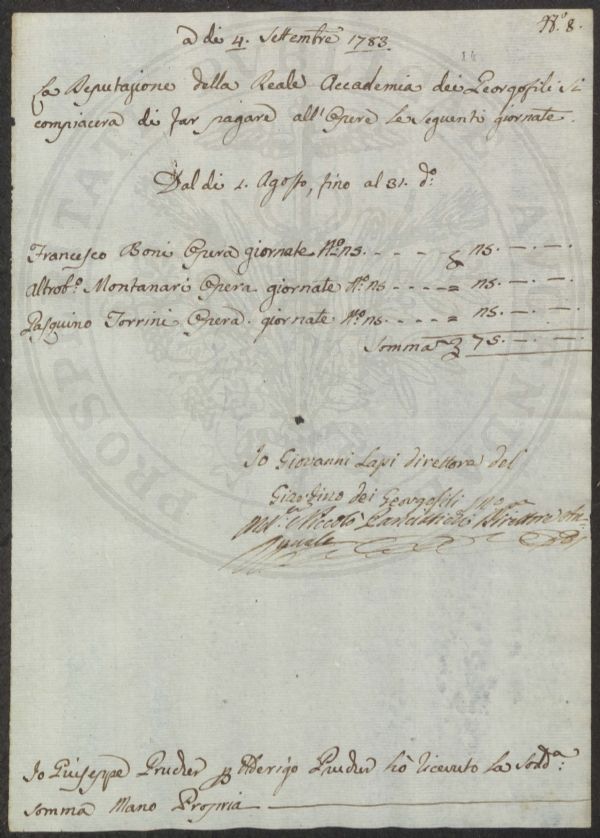 N.º 8.
a di 4. Settembre 1783.
La Deputazione della Reale Accademia dei Georgofili si
compiacerà di far pagare all'Opere le seguenti giornate.
Dal di 1. Agosto, fino al 31. dº:
Francesco Boni Opera giornate Nº 25. - - - - £ 25. —. —.
Altrobº: Montanari Opera giornate Nº 25 - - - - = 25. —. —
Pasquino Torrini Opera giornate Nº 25. - - - - = 25. —. —.
Somma £ 75. —. —.
Io Giovanni Lapi direttore del
Giardino dei Georgofili
Niccolò Direttore
Io Giuseppe Pruder Aderigo Pruder hò ricevuto la Sodª:
somma Mano Propria
PROSPERITATI PUBLICAE AUGENDAE